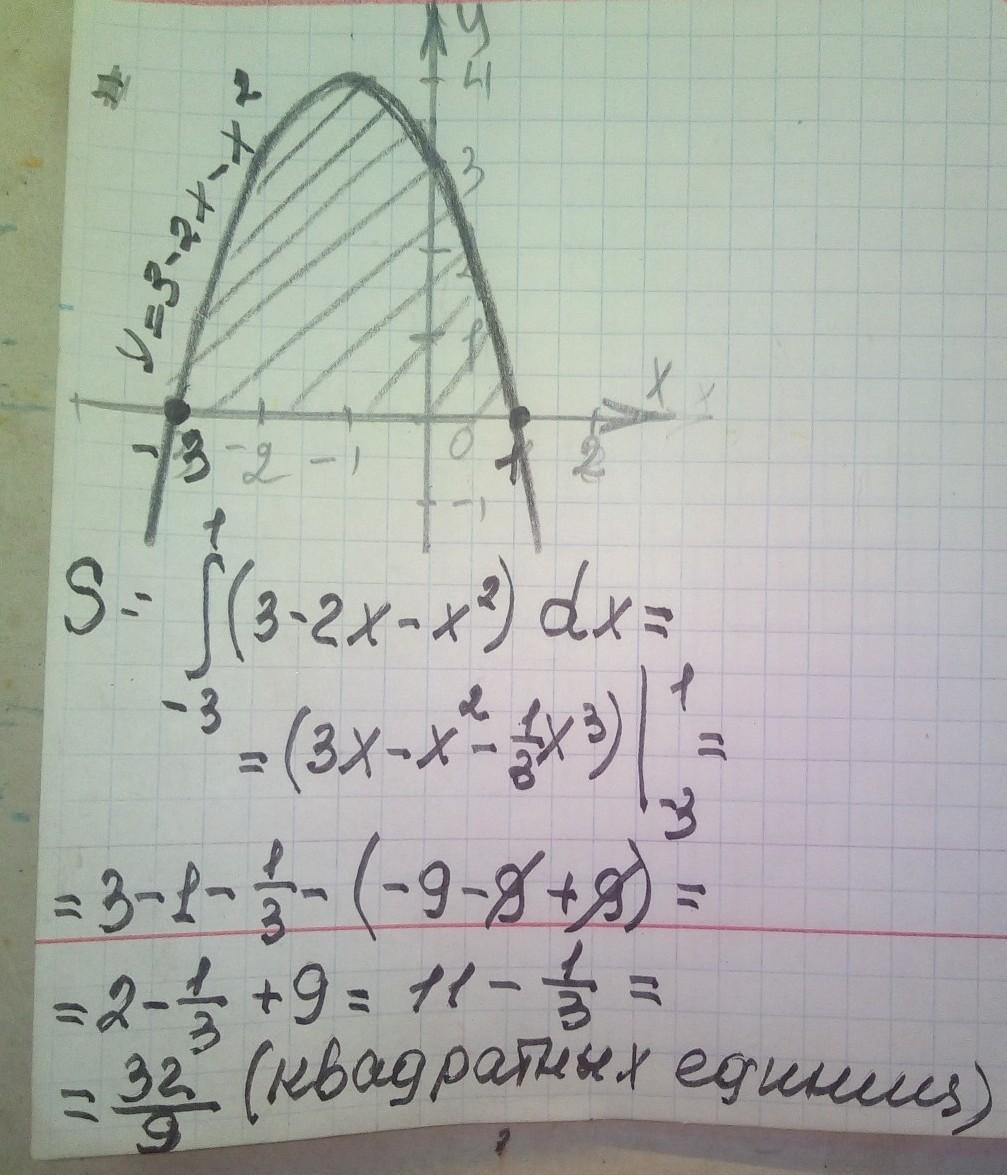 y
4
y = 3 - 2x - x²
3
2
1
x
-3 -2 -1 0 1 2
-1
S = ∫₋₃¹ (3 - 2x - x²) dx =
= (3x - x² - 1/3 x³) |₃¹ =
= 3 - 1 - 1/3 - (-9 - 9 + 9) =
= 2 - 1/3 + 9 = 11 - 1/3 =
= 32/9 (квадратных единиц)